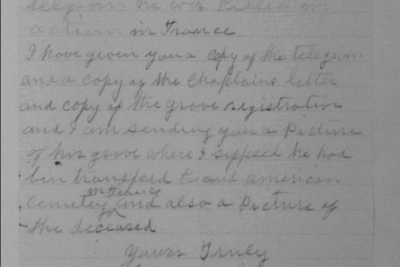 telegram he was killed in
action in France
I have given you a copy of the telegram
and a copy of the Chaplains letter
and copy of the grove registration
and I am sending you a Picture
of his grove where I suppsed he had
bin transferd to and american
in France
Cemetey and also a Picture of
the deceased
Yours Truly